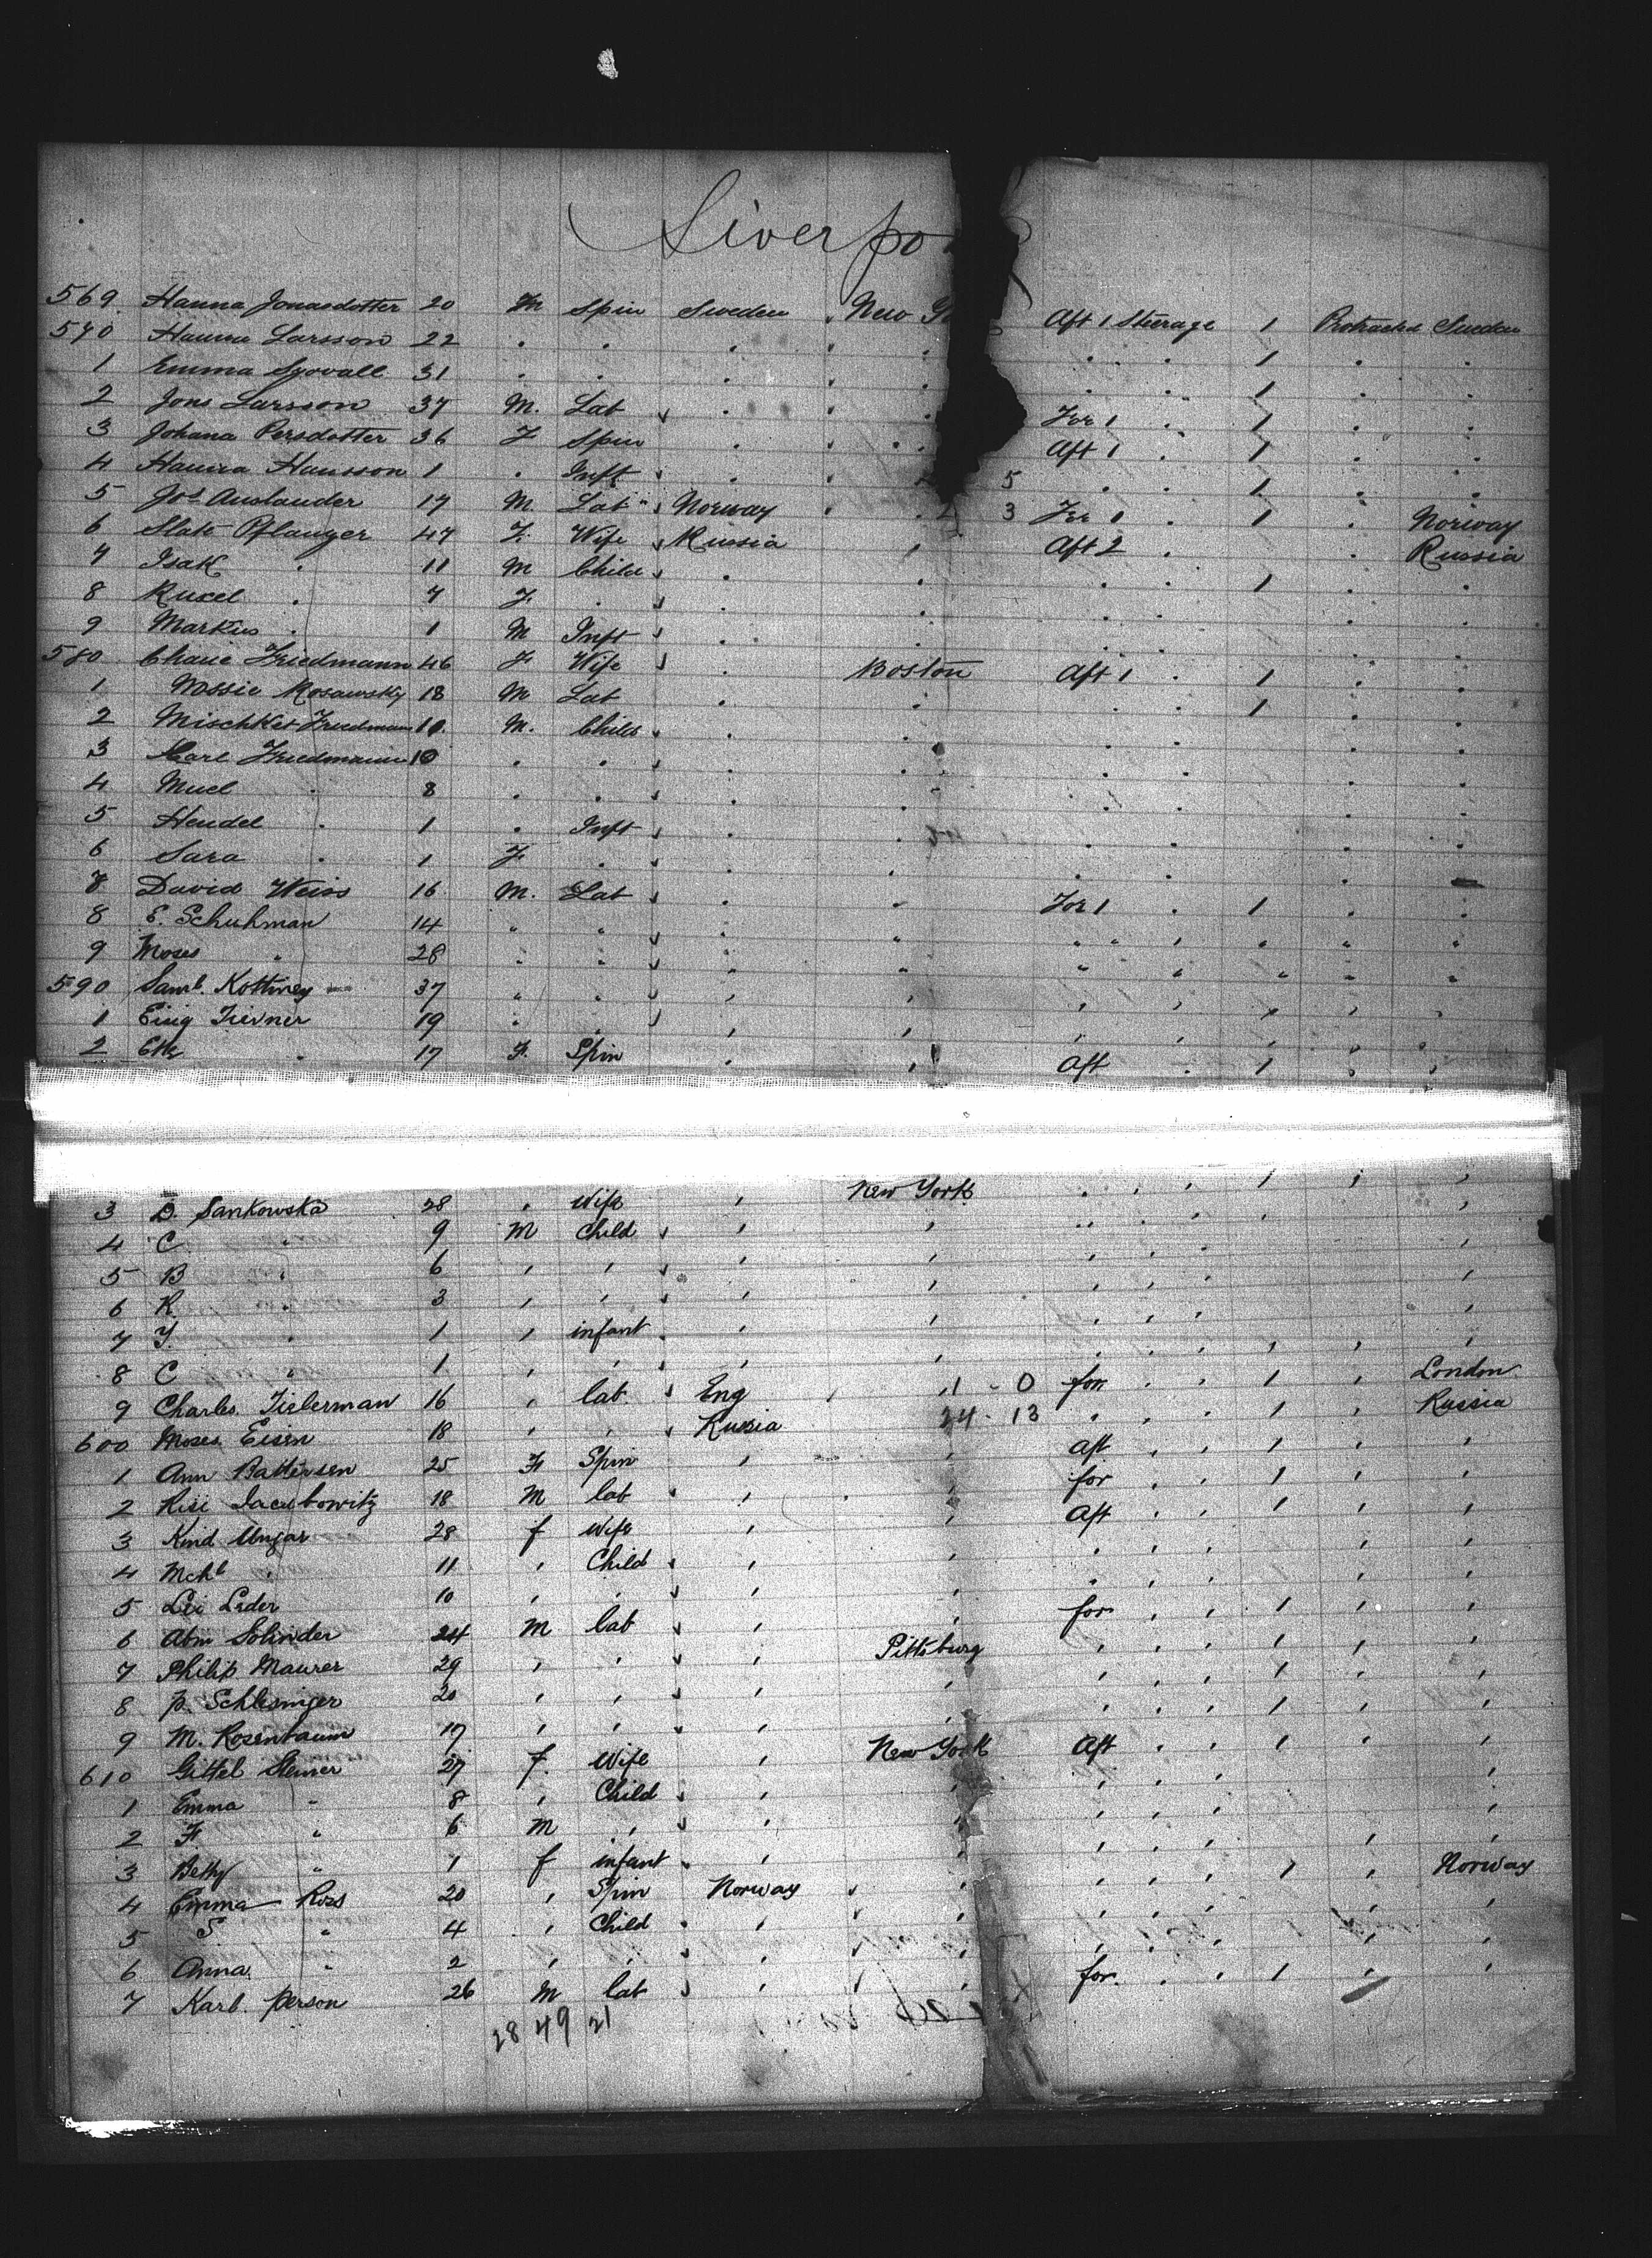 Liverpo
569. Hanna Jonasdotter 20 Fm Spin Sweden New Y Aft 1 Steerage 1 Protracted Sweden
570 Hanna Larsson 22 . . . . . . . 1 . .
1 Emma Syovall 31 . . . . . . . 1 . .
2 Jons Larsson 37 M. Lab . . For 1 . 1 . .
3 Johana Persdotter 36 F Spin . . Aft 1 . 1 . .
4 Hanna Hansson 1 . Inft . . 5 . . 1 . .
5 Jos Auslander 17 M. Lab " Norway . 3 For 1 . 1 . Norway
6 Slate Pflanzer 47 F. Wife Russia . Aft 2 . . Russia
7 Isak . 11 M Child . . . . 1 . .
8 Ruxel . 7 F. . . . . . . .
9 Markus . 1 M Inft . . . . . .
580 Chaie Friedmann 46 F Wife . Boston Aft 1 . 1 . .
1 Mossie Rosawsky 18 M Lab . . . . 1 . .
2 Mischket Friedmann 10. M. Child . . . . . .
3 Carl Friedmann 10 . . . . . . . .
4 Muel . 8 . . . . . . . .
5 Hendel . 1 . Inft . . . . . .
6 Sara . 1 F. . . . . . . .
7 David Weiss 16 M. Lab . . For 1 . 1 . .
8 E. Schuhman 14 " " . " " " , " " "
9 Moses " 28 " " . " " " " " "
590 Saml. Kottney 37 " " , , , , , , ,
1 Eisig Tierner 19 " , , , , , , , ,
2 " 17 F. Spin . , Aft . 1 , ,
3 D. Sankowska 28 , Wife , New York . , , 1 , ,
4 C " 9 M Child , , " , , ,
5 B " 6 , , , , , , , ,
6 R. " 3 , , , , , , , ,
7 Y. " 1 , infant , , , , , ,
8 C " 1 , , , , , , , , , ,
9 Charles Tislerman 16 , lab. Eng , 1 - 0 for . , 1 , London
600 Moses Eisen 18 , , Russia 24 - 13 , , , 1 , Russia
1 Ann Battersen 25 F Spin , , aft , , 1 , ,
2 Risi Jacubowitz 18 M lab , , for , , 1 , ,
3 Kind Ungar 28 f Wife , , Aft , , 1 , ,
4 Mchl " 11 , Child , , , , , , ,
5 Lei Leder 10 , , , , , , , , ,
6 Abm Solinder 24 M lab , , for , , 1 , ,
7 Philip Maurer 29 , , , Pittsburg , , , 1 , ,
8 p. Schlesinger 20 , , , , , , , 1 , ,
9 M. Rosenbaum 17 , , , , , , , 1 , ,
610 Gittel Steiner 27 f. Wife , New York Aft , , 1 , ,
1 Emma " 8 , Child , , , , , ,
2 F " 6 M , , , , , , ,
3 Betty " 1 f infant , , , , , , ,
4 Emma Ross 20 , Spin Norway , , , , 1 , Norway
5 S " 4 , Child , , , , , , ,
6 Anna " 2 , , , , , , , , ,
7 Karl. person 26 M lab , , for. , , 1 , ,
28 49 21